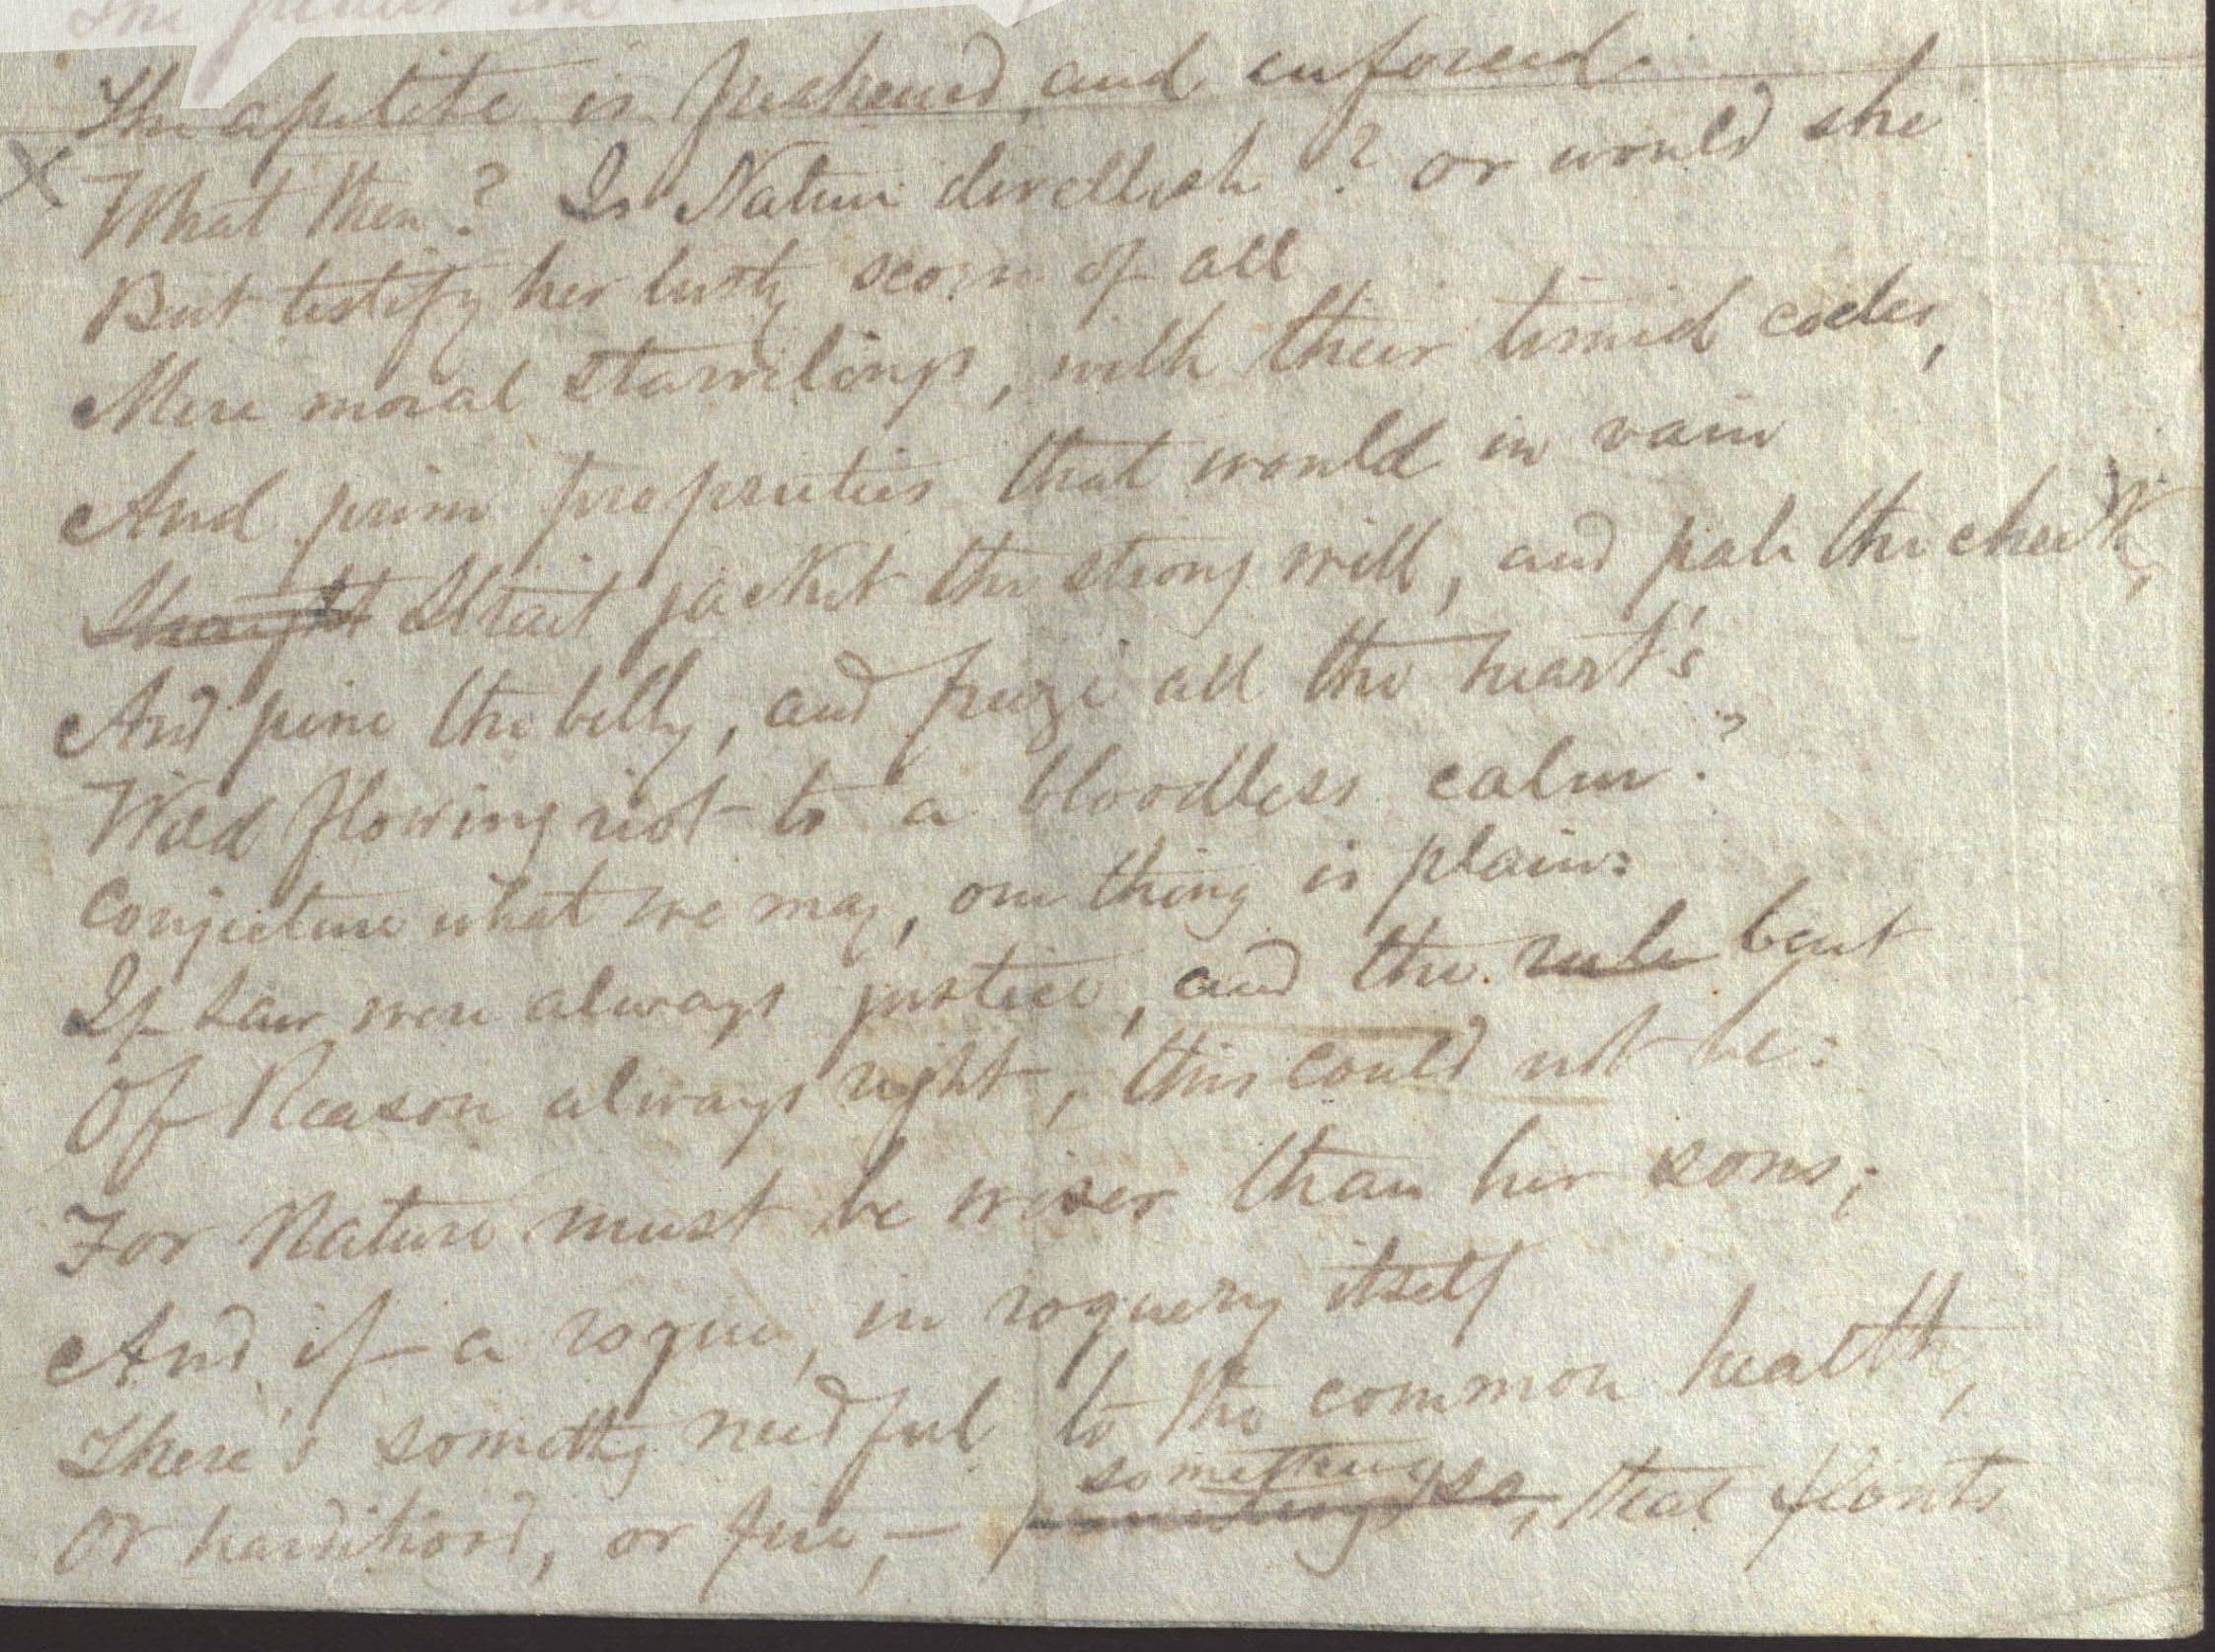 The
The apetite is freshened and enforced.
X What then? Is Nature devellish? or would she
But testify her lusty scorn of all
Mere moral starvelings, with their timid codes,
And prim proprieties that would in vain
Straight Strait jacket the strong will, and pale the cheek,
And pine the belly, and freeze all the heart's
Wild flowing riot to a bloodless calm?
Conjecture what we may, one thing is plain:
If Law were always justice, and the rule bent
Of Reason always right, this could not be:
For Nature must be wiser than her sons;
And if a rogue, in roguery itself
There's somethg needful to the common health,
something so
Or hardihood, or fire,— , that flouts